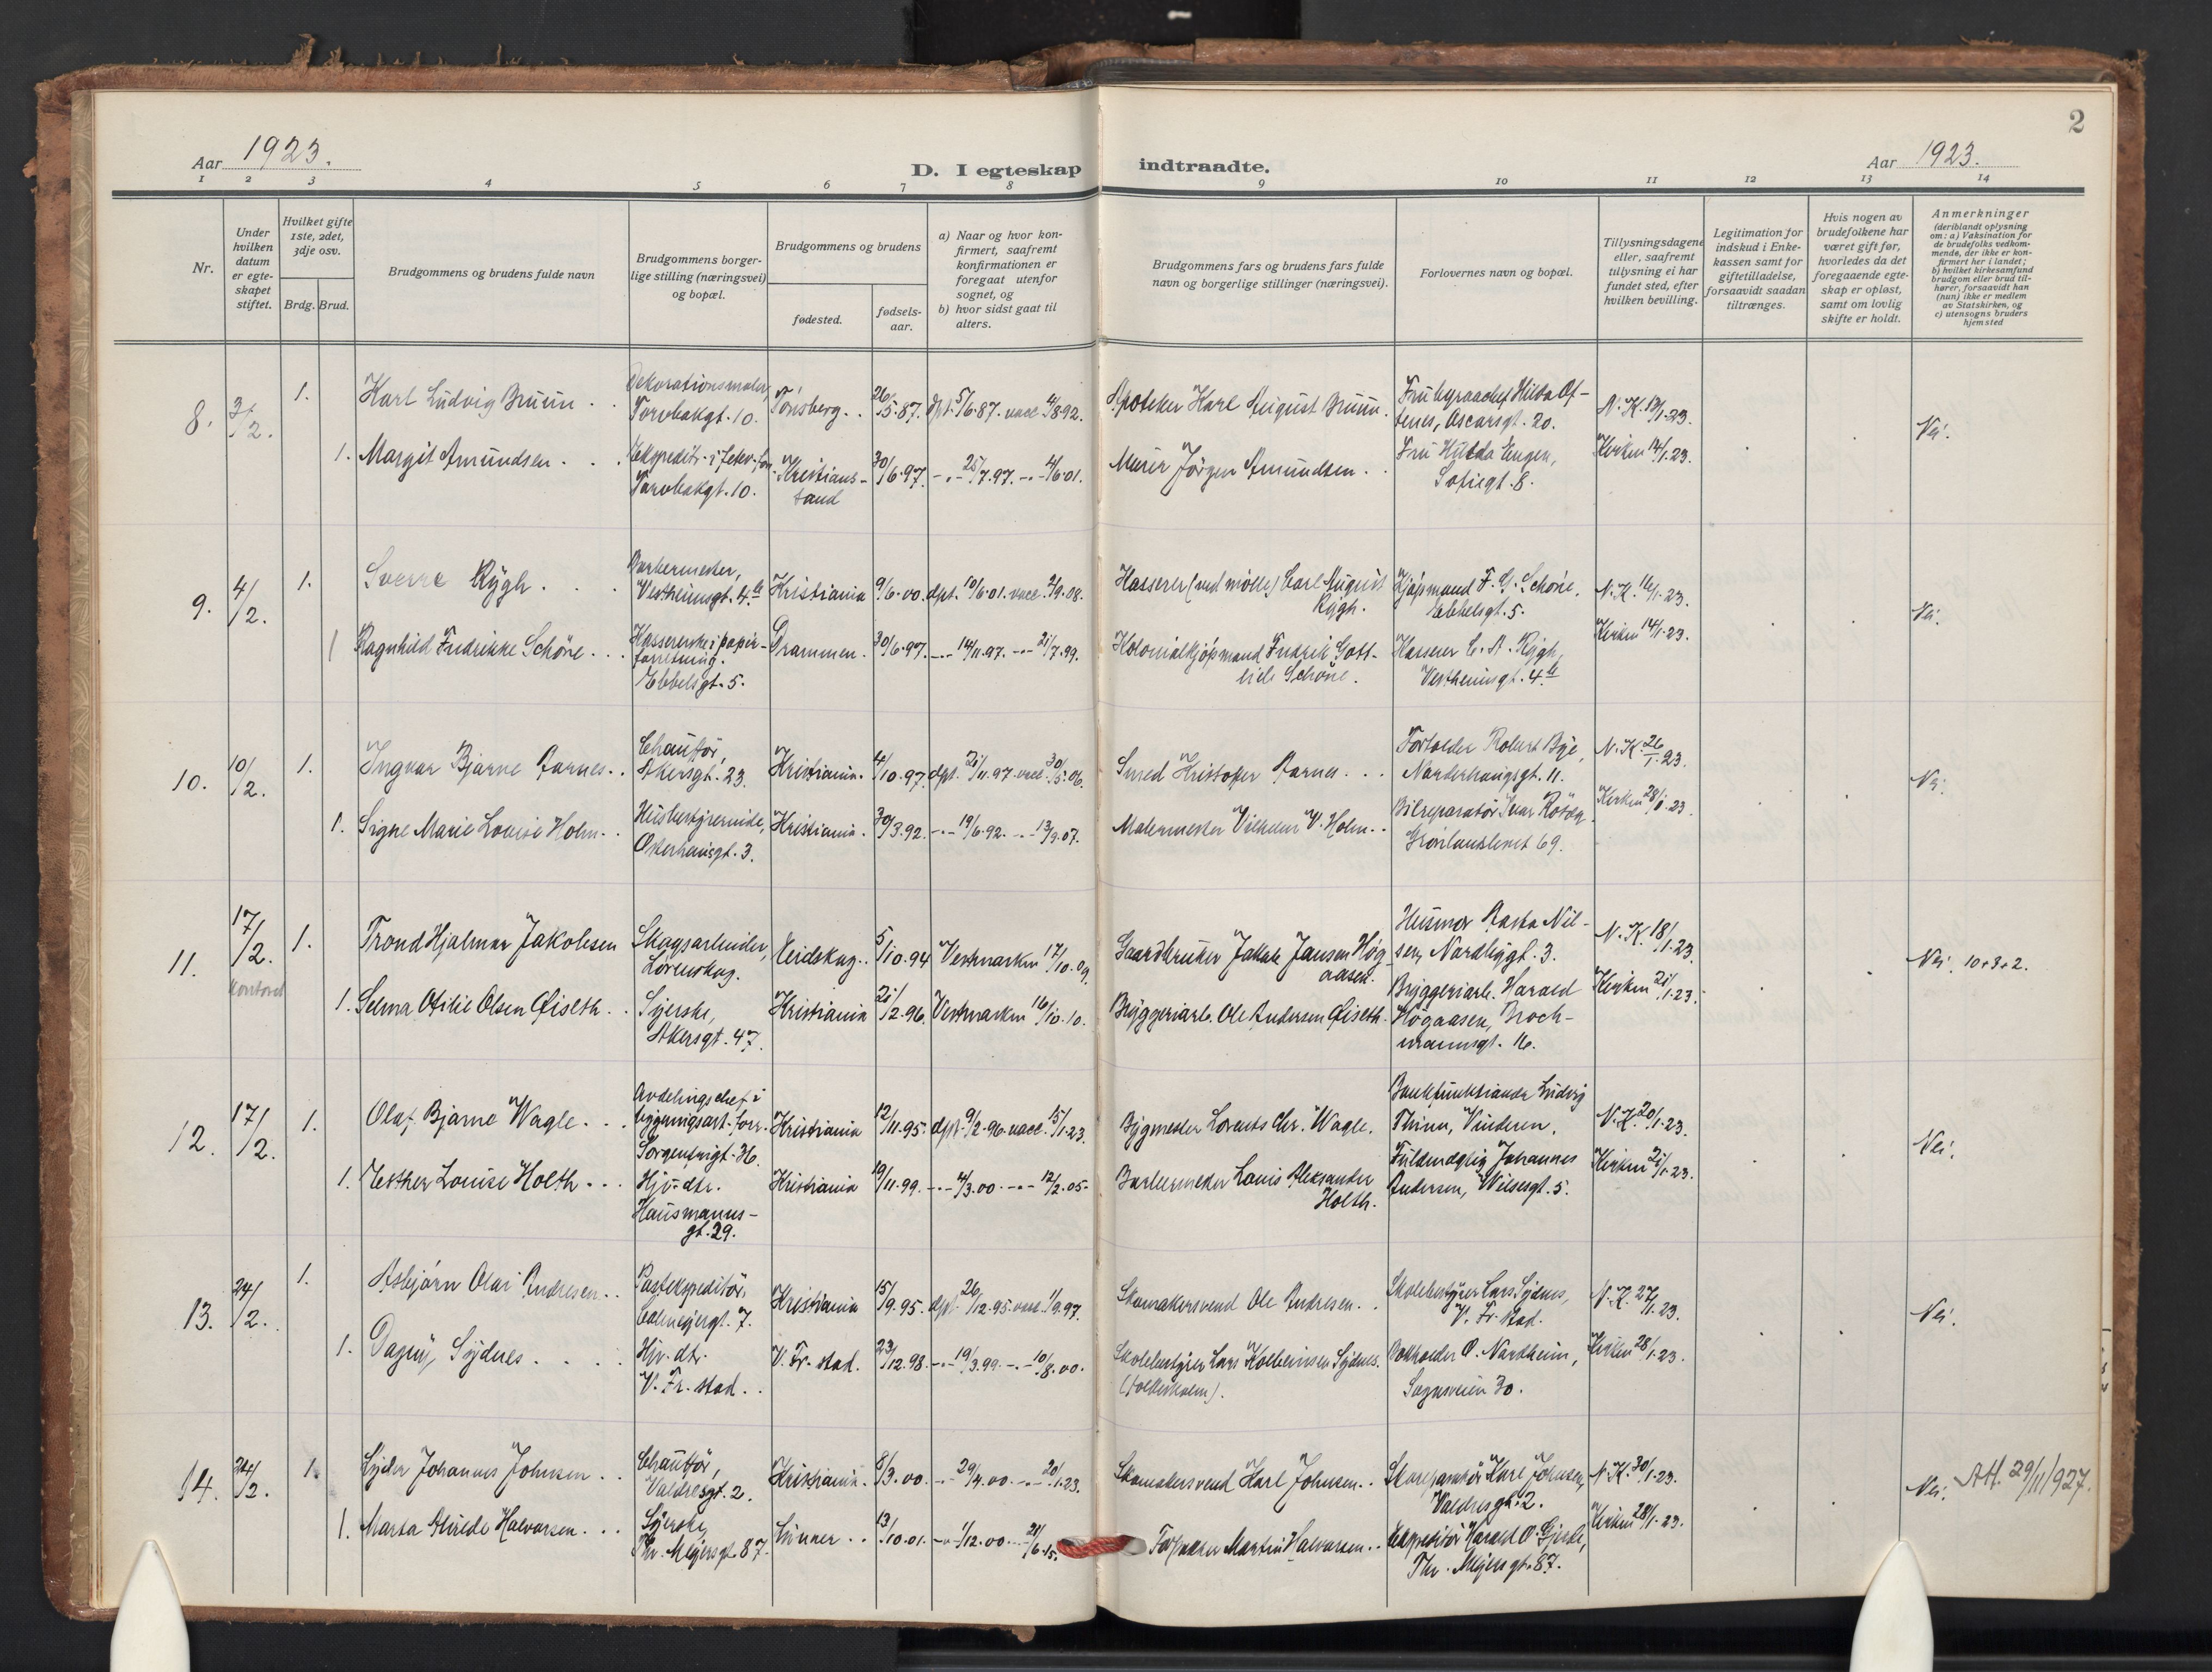 2
Aar 1923.
D. I egteskap indtraadte.
Aar 1923.
1 2 3 4 5 6 7 8 9 10 11 12 13 14
Nr.
Under hvilken datum er egte-skapet stiftet.
Hvilket gifte 1ste, 2det, 3dje osv.
Brdg. Brud.
Brudgommens og brudens fulde navn
Brudgommens borger-lige stilling (næringsvei) og bopæl.
Brudgommens og brudens
fødested.
fødsels-aar.
a) Naar og hvor kon-firmert, saafremt konfirmationen er foregaat utenfor sognet, og
b) hvor sidst gaat til alters.
Brudgommens fars og brudens fars fulde navn og borgerlige stillinger (næringsvei).
Forlovernes navn og bopæl.
Tillysningsdagene eller, saafremt tillysning ei har fundet sted, efter hvilken bevilling.
Legitimation for indskud i Enke-kassen samt for giftetilladelse, forsaavidt saadan tiltrænges.
Hvis nogen av brudefolkene har været gift før, hvorledes da det foregaaende egte-skap er opløst, samt om lovlig skifte er holdt.
Anmerkninger
(deriblandt oplysning om: a) Vaksination for de brudefolks vedkom-mende, der ikke er kon-firmert her i landet; b) hvilket kirkesamfund brudgom eller brud til-hører, forsaavidt han (hun) ikke er medlem av Statskirken, og c) utensogns bruders hjemsted
8. 3/2. 1. Karl Ludvig Bruun . .
Dekorationsmaler, Torvbakgt. 10.
Tønsberg. . 26/5.87. dpt. 5/6.87. vacc. 4/8.92.
Apoteker Karl August Bruun.
Oscarsgt. 20.
N. K. 13/1.23.
Nei.
1. Margit Amundsen . . .
Torvbakgt. 10.
Kristianssand 30/6.97. -"- 25/7.97. -"- 4/6.01.
Murer Jörgen Amundsen . .
Fru Hulda Engen, Sofiegt. 8.
Kirken 14/1.23.
9. 4/2. 1. Sverre Rygh . . .
Barbermester, Vestheimsgt. 4b
Kristiania 9/6.00. dpt. 10/6.01. vacc. 2/9.08.
Kasserer (ved mölle) Carl August Rygh.
Kjöpmand F. G. Schöne, Ebbelsgt. 5.
N. K. 16/1.23.
Nei.
1 Ragnhild Fredrikke Schöne . . .
Kassererske i papir-forretning. Ebbelsgt. 5.
Drammen. 30/6.97. -"- 14/11.97. -"- 21/7.99.
Kolonialkjöpmand Fredrik Gott-lieb Schöne.
Kasserer C. A. Rygh, Vestheimsgt. 4b
Kirken 14/1.23.
10. 10/2. 1. Ingvar Bjarne Aarnes. .
Chaufför, Akersgt. 23.
Kristiania. 4/10.97. dpt. 21/11.97. vacc. 30/5.06.
Smed Kristofer Aarnes . . .
Robert Bye, Norderhougsgt. 11.
N. K. 26/1.23.
Nei.
1. Signe Marie Louise Holm. .
Husbestyrerinde, Osterhausgt. 3.
Kristiania. 30/3.92. -"- 19/6.92. -"- 13/9.07.
Malermester Vilhelm V. Holm. .
Bilreparatör Grönlandsleret 69.
Kirken 28/1.23.
11. 17/2. kontoret 1. Trond Hjalmar Jakobsen
Skogsarbeider, Lörenskog.
Eidskog. . 5/10.94 Vestmarken 17/10.09.
Gaardbruker Jakob Jansen Høg-aasen.
Husmor Nil-sen, Nordbygt. 3.
N. K. 18/1.23.
Nei. 10+3+2.
1. Selma Otilie Olsen Øiseth. .
Syerske, Akersgt. 47.
Kristiania 21/2.96. Vestmarken 16/10.10.
Bryggeriarb. Ole Andersen Øiseth.
Bryggeriarb. Harald Högaasen, Broch-mannsgt. 16.
Kirken 21/1.23.
12. 17/2. 1. Olaf Bjarne Wagle. . .
Avdelingschef i bygningsart. forr. Sorgenfrigt. 36.
Kristiania 12/11.95. dpt. 9/2.96. vacc. 15/1.23.
Bygmester Lorents Chr. Wagle.
Ludvig Vinderen.
N. K. 20/1.23.
Nei.
1. Esther Louise Holth. . .
Hjv. dtr. Hausmanns-gt. 29.
Kristiania 19/11.99. -"- 4/3.00. -"- 12/2.05.
Barbermester Louis Aleksander Holth.
Fuldmægtig Johannes Andersen, Wilsesgt. 5.
Kirken 21/1.23.
13. 24/2. 1. Asbjörn Olai Andresen. .
Postekspeditör, Colletsgt. 7.
Kristiania 15/9.95. dpt. 26/12.95. vacc. 1/9.97.
Skomakersvend Ole Andresen. .
Skolebestyrer Lars Sydnes, V. Fr. stad.
N. K. 27/1.23.
Nei.
1. Dagny Sydnes . . . .
Hjv. dtr. V. Fr. stad. .
V. Fr. stad. 23/12.98. -"- 19/3.99. -"- 10/8.00.
Skolebestyrer Lars Kolbeinsen Sydnes.
Bokholder O. Nordheim, Sognsveien 30.
Kirken 28/1.23.
14. 24/2. 1. Lyder Johannes Johnsen . .
Chaufför, Valdresgt. 2.
Kristiania. 8/3.00. -"- 29/4.00. -"- 20/1.23.
Skomakersvend Karl Johnsen. .
Karl Johnsen, Valdresgt. 2.
N. K. 30/1.23.
Nei. Att. 29/11/927.
1. Marta Alvilde Halvorsen. . .
Syerske, Thv. Meyersgt. 87.
Lunner . . 13/10.01. -"- 1/12.00. 21/6.15.
Forpakter Martin Halvorsen. .
Ekspeditör Harald O. Thv. Meyersgt. 87.
Kirken 28/1.23.